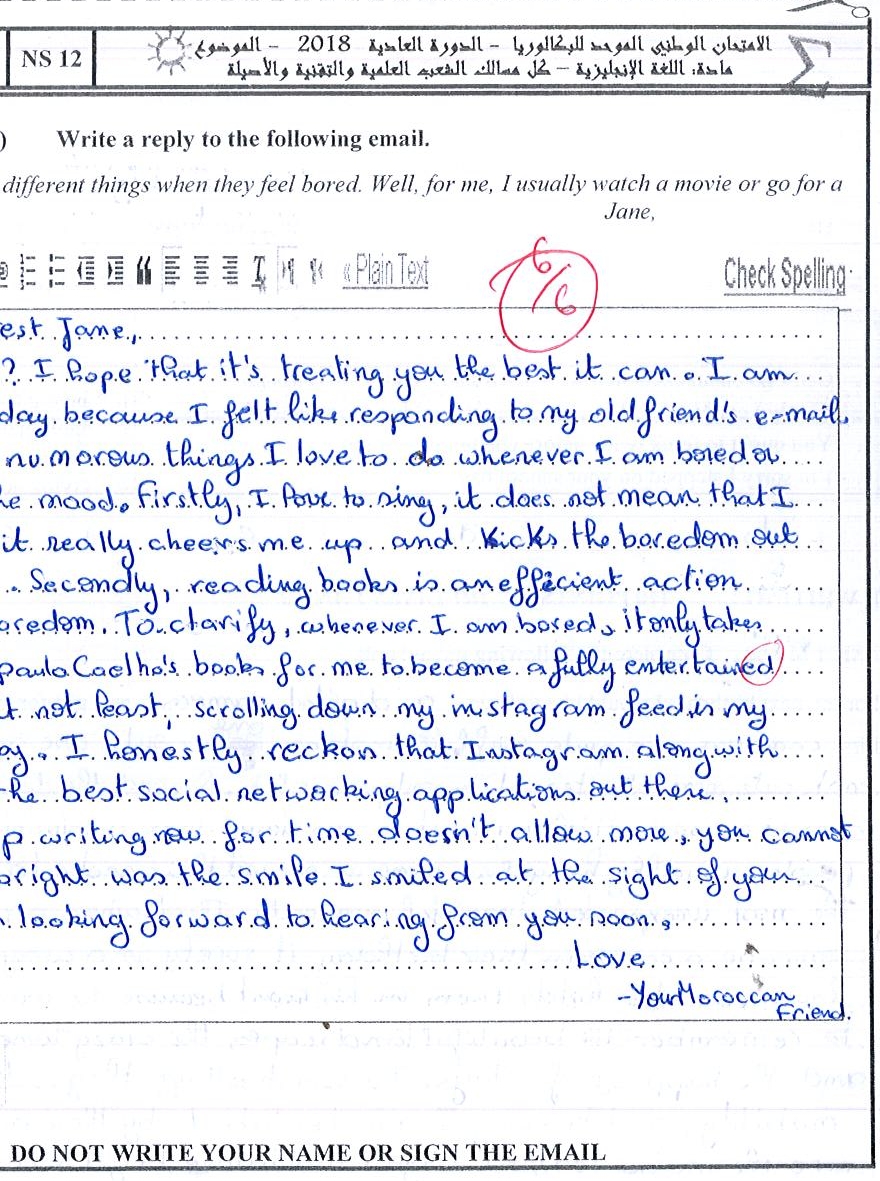 NS 12
الامتحان الوطني الموحد للبكالوريا – الدورة العادية 2018 – الموضوع
مادة: اللغة الإنجليزية – كل مسالك الشعب العلمية والتقنية والأصيلة
) Write a reply to the following email.
different things when they feel bored. Well, for me, I usually watch a movie or go for a
Jane,
« Plain Text
Check Spelling
6/6
est Jane,
? I hope that it's treating you the best it can. I am
day because I felt like responding to my old friend's e-mail,
numorous things I love to do whenever I am bored or
he mood. Firstly, I love to sing, it does not mean that I
it really cheers me up and kicks the boredom out
. Secondly, reading books is an efficient action
oredom. To clarify, whenever I am bored, it only takes
paulo Coelho's books for me to become a fully entertained
t not least, scrolling down my instagram feed is my
ay. I honestly reckon that Instagram along with
the best social networking applications out there.
p writing now for time doesn't allow more, you cannot
bright was the smile I smiled at the sight of your
looking forward to hearing from you soon,
Love
-Your Moroccan
Friend.
DO NOT WRITE YOUR NAME OR SIGN THE EMAIL